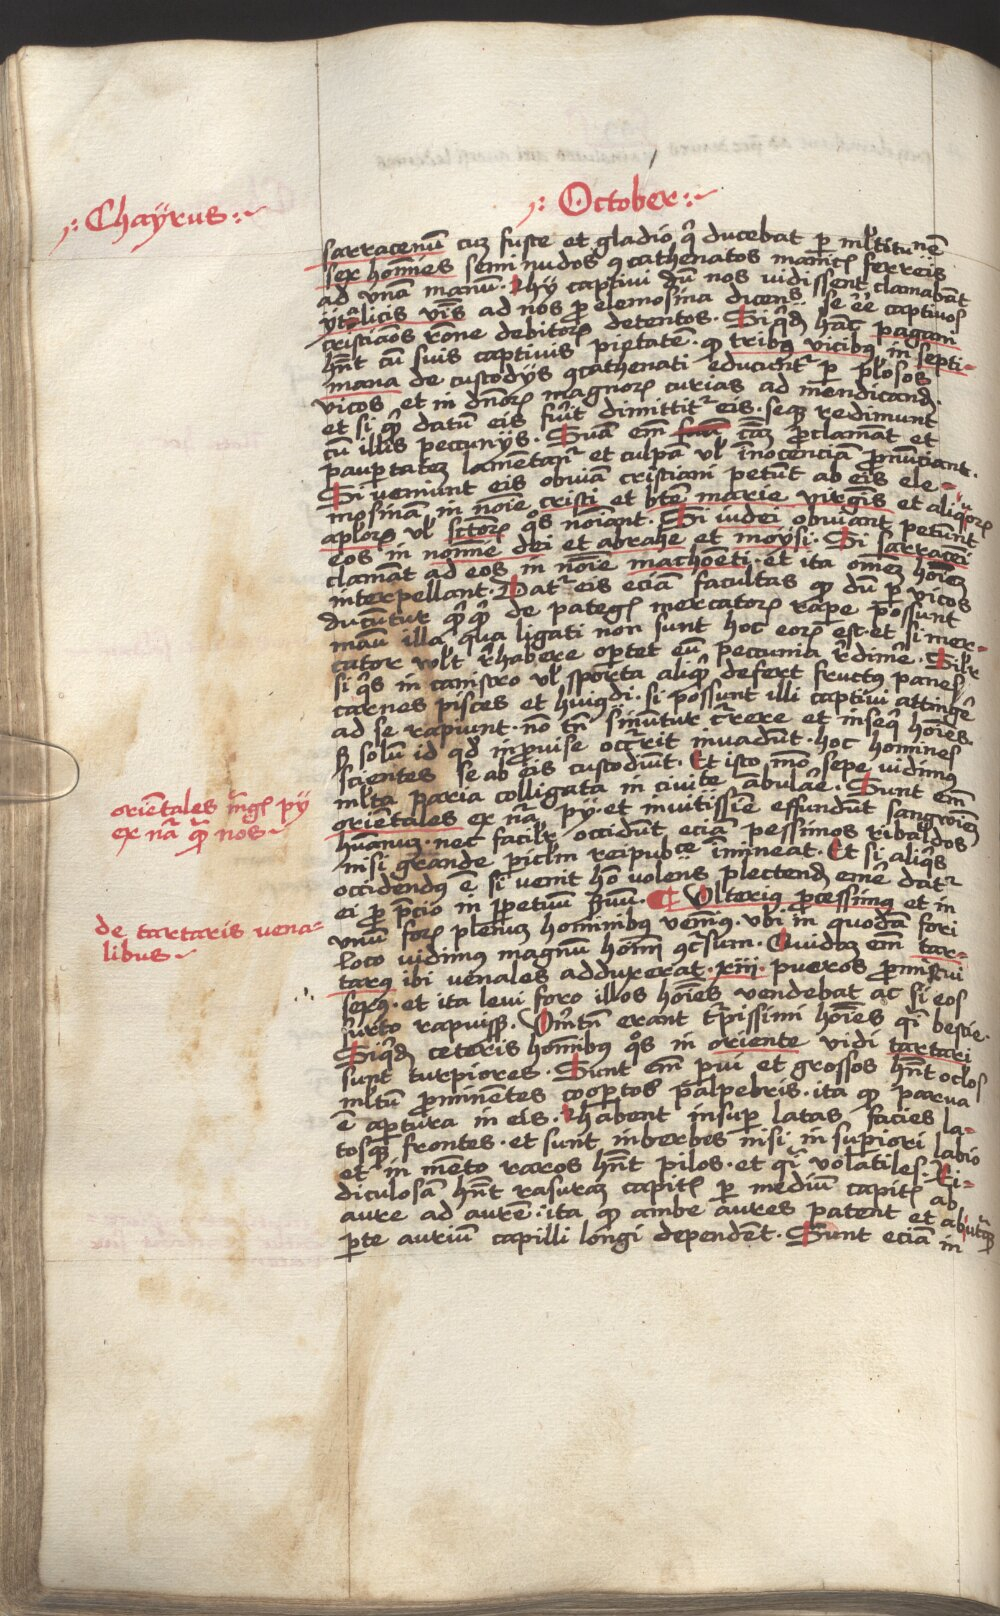 Chayrus
October
sarracenū cuʒ fuste et gladio qi ducebat p mltitunē
sex homines seminudos 9cathenatos manicis ferreis
ad vnā manū. Hy captivi dū nos vidissent clamabāt
ytalicis v̄bis ad nos p elemosina dicens se eē captivos
cristiaōs rōne debitoꝝ detentos. Siqdē hāc pagani
hn̄t cū suis captivis pietatē. qꝫ tribus vicibꝰ in septi-
mana de custodiis 9cathenati educunt᷑ p plosos
vicos et in dn̄oꝝ magnoꝝ curias ad mendicand.
et si qd datū eis fūit dimittit᷑ eis. seqꝫ redimunt
cū illis peccuniis. Suā em̄ cāꝫ proclamāt et
paupertatem lamētant᷑ et culpā vl innocenciā pronūciant.
Si veniunt eis obviā cristiani petūt ab eis ele-
mosinā in noīe cristi et btē marie virgīs et aliquoꝝ
aploꝝ vl sctoꝝ qōs noīant. Si iudei obviant petūnt
eos in nomine dei et abrahe et moysi. Si sarraceni
clamāt ad eos in noīe machometi. et ita omēs hoīes
interpellant. Dat᷑ eis eciā facultas qꝫ dū p vicos
ducūtur qiqd de pategis mercatoꝝ rape possunt
manu illa qua ligati non sunt hoc eoꝝ est. et si mer-
cator vult rehabere oportet eū peccunia redimē. Silr
si qis in canistro vl sporta aliqd defert fructus panes
carnes pisces et huiusdi. si possunt illi captivi attingē
ad se rapiunt. nō tn̄ sinūtur currere et inseqi hoīes.
sꝫ solū id qd improuise occurrit invadūt. hoc homines
scientes se ab eis custodiūt. Et isto mō sepe vidimus
mlta paria colligata in civite ābulāe. Sunt em̄
orientales ex nā py. et invitissime effundūt sangwinē
humanum. nec facilr occidūt eciā pessimos ribaldos
nisi grande piclm reipubce immineat. Et si aliqis
occidendus ē si venit hō volens plectend emē dat᷑
ei p pcio in ppetuū suū. ¶ Vlterius processimus et in
vnū foꝝ plenuꝫ hominibꝰ venimus. vbi in quodā fori
loco vidimus magnū homin 9cursum. Quidaꝫ em̄ tar-
tarus ibi venales adduxerat. xiii. pueros promiscui
sexus. et ita levi foro illos hoīes vendebat ac si eos
furto rapuisset. Vmtn̄ erant turpissimi hoīes qi bestie.
Siqdē ceteris hominibus qōs in oriente vidi tartari
sunt turpiores. Sunt em̄ pui et grossos hn̄t oclos
mltū prominentes coopertos palpebris. ita qꝫ parva
ē apertura in eis. Habent insup latas facies la-
tosqꝫ frontes. et sunt inberbes nisi in supiori labio
et in mento raros hn̄t pilos. et qi volatiles. Ri-
diculosā hn̄t rasuraꝫ capitis p mediū capitis ab
aure ad aurē. ita qꝫ ambe aures patent et ab utraqꝫ
pte auriū capilli longi dependēt. Sunt eciā in
orientales mgis py
ex nā qm̄ nos
de tartaris vena-
libus